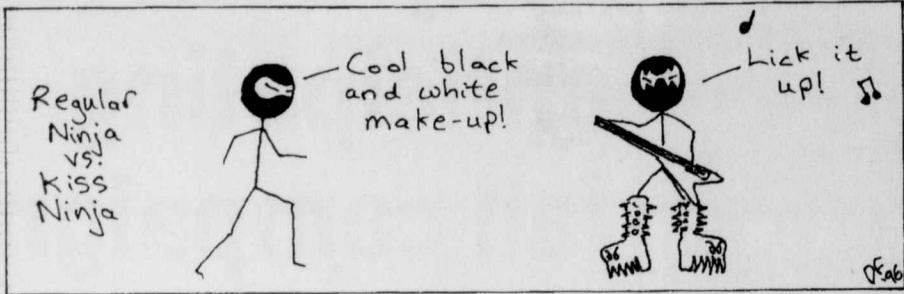 Regular
Ninja
vs.
Kiss
Ninja
Cool black
and white
make-up!
Lick it
up!